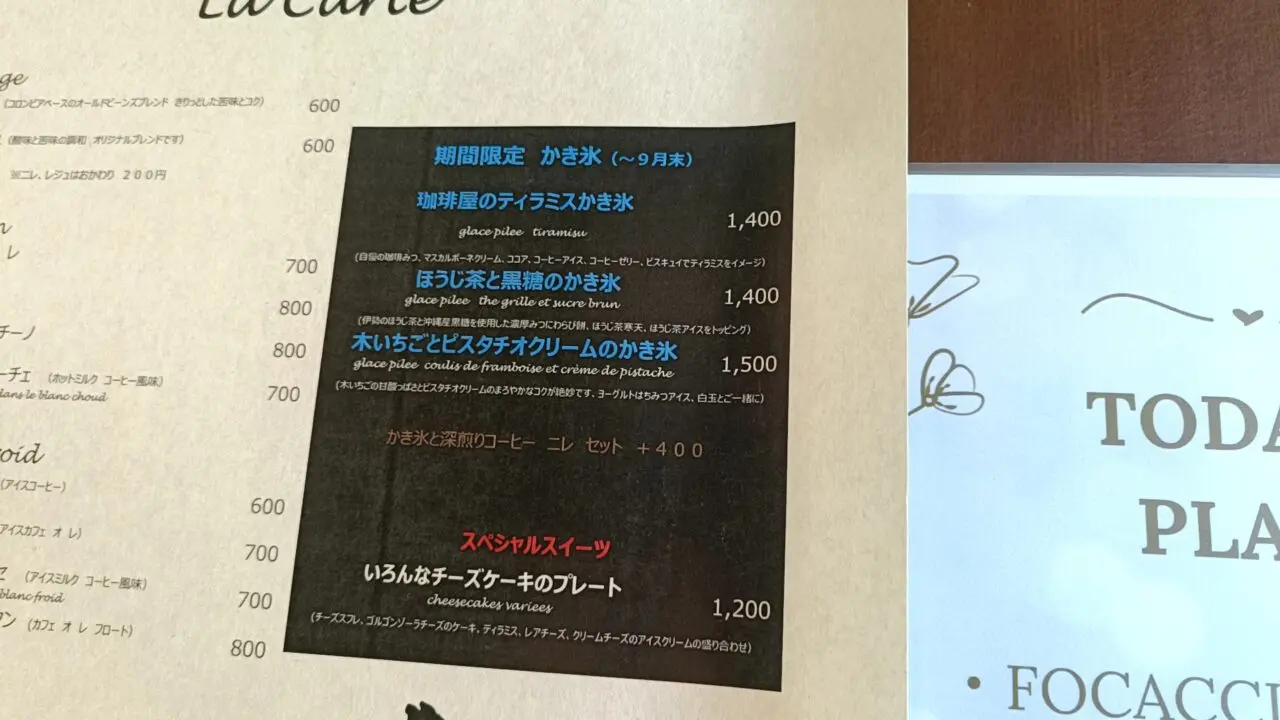 La Carte
(コロンビアベースのオールドビーンズブレンド きりっとした苦味とコク) 600
(酸味と苦味の調和 オリジナルブレンドです) 600
※ニレ、レジュはおかわり 200円
レ 700
800
チーノ 800
ーチェ (ホットミルク コーヒー風味) 700
dans le blanc choud
roid
(アイスコーヒー) 600
アイスカフェ オ レ) 700
(アイスミルク コーヒー風味) 700
blanc froid
(カフェ オ レ フロート) 800
期間限定 かき氷 (～9月末)
珈琲屋のティラミスかき氷 1,400
glace pilee tiramisu
(自慢の珈琲みつ、マスカルポーネクリーム、ココア、コーヒーアイス、コーヒーゼリー、ビスキュイでティラミスをイメージ)
ほうじ茶と黒糖のかき氷 1,400
glace pilee the grille et sucre brun
(伊勢のほうじ茶と沖縄産黒糖を使用した濃厚みつにわらび餅、ほうじ茶寒天、ほうじ茶アイスをトッピング)
木いちごとピスタチオクリームのかき氷 1,500
glace pilee coulis de framboise et crème de pistache
(木いちごの甘酸っぱさとピスタチオクリームのまろやかなコクが絶妙です、ヨーグルトはちみつアイス、白玉とご一緒に)
かき氷と深煎りコーヒー ニレ セット +400
スペシャルスイーツ
いろんなチーズケーキのプレート 1,200
cheesecakes variees
(チーズスフレ、ゴルゴンゾーラチーズのケーキ、ティラミス、レアチーズ、クリームチーズのアイスクリームの盛り合わせ)
TODA
PLA
• FOCACCI